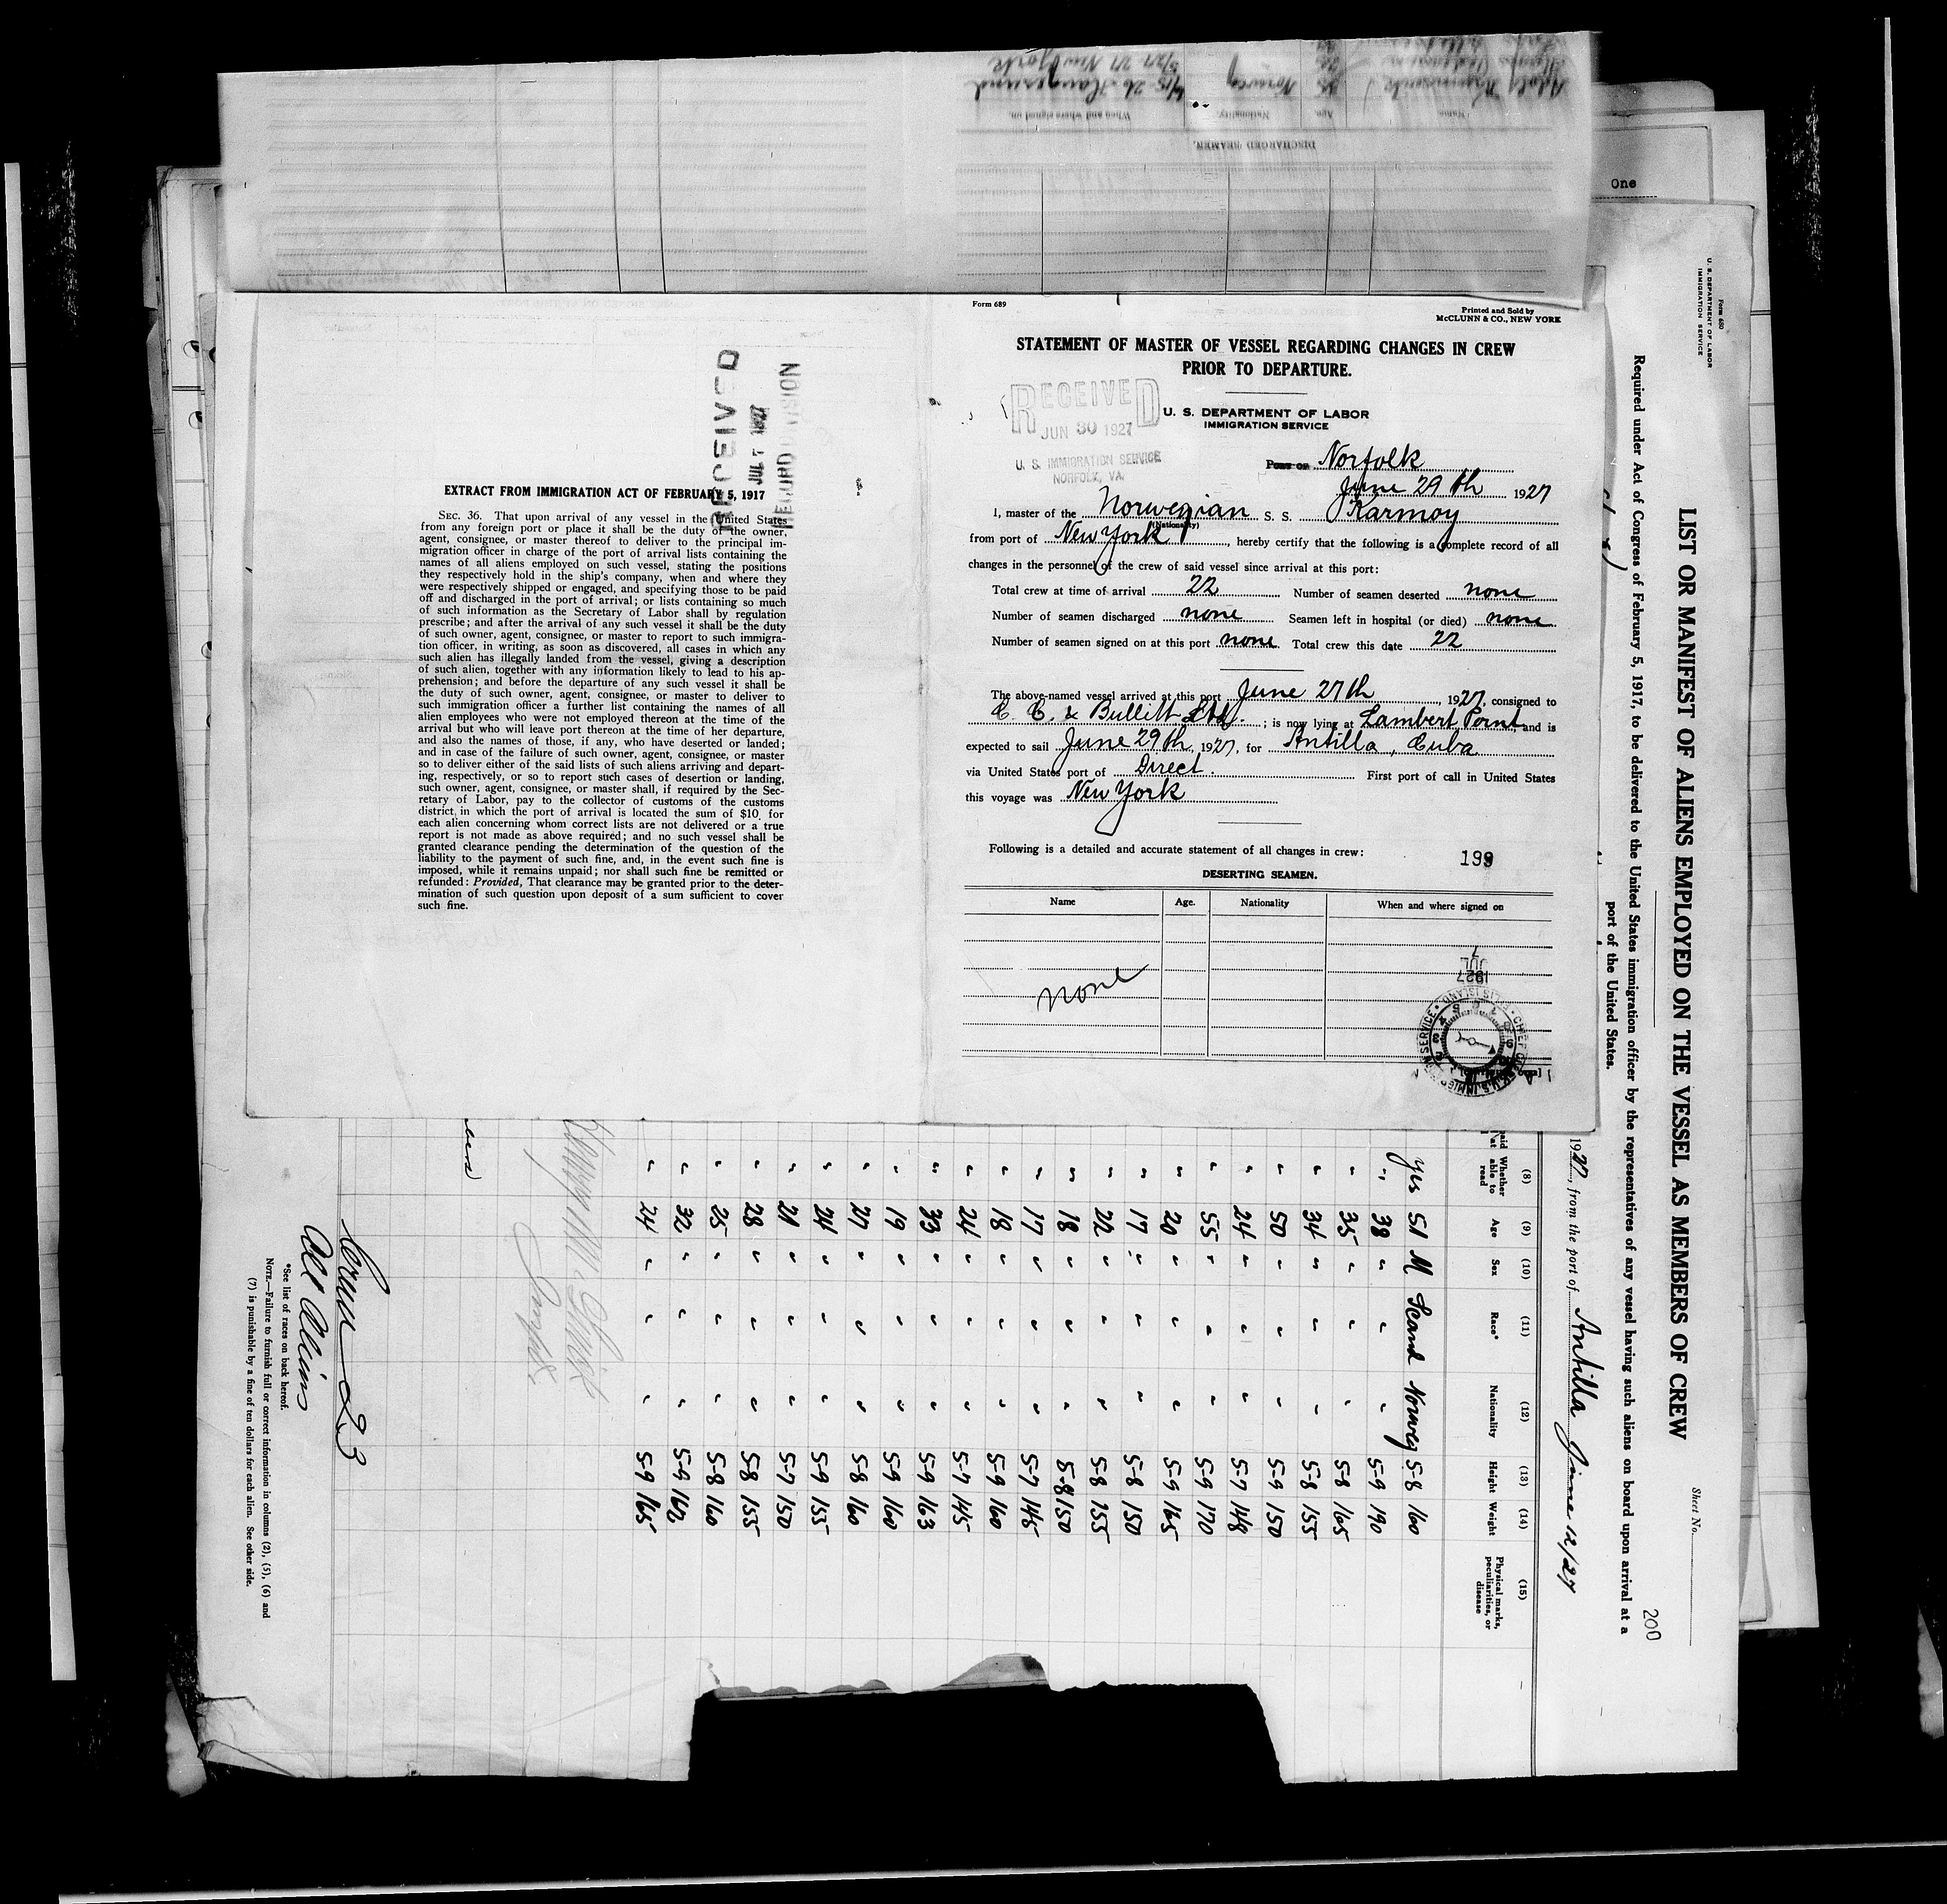 DISCHARGED SEAMEN.
Name.
Age.
Nationality.
When and where signed on.
Norway
One
Form 689
Printed and Sold by
McCLUNN & CO., NEW YORK
STATEMENT OF MASTER OF VESSEL REGARDING CHANGES IN CREW
PRIOR TO DEPARTURE.
RECEIVED
JUN 30 1927
U. S. IMMIGRATION SERVICE
NORFOLK, VA.
U. S. DEPARTMENT OF LABOR
IMMIGRATION SERVICE
Port of Norfolk
June 29th 1927
I, master of the Norwegian S. S. Karmoy
(Nationality)
from port of New York, hereby certify that the following is a complete record of all
changes in the personnel of the crew of said vessel since arrival at this port:
Total crew at time of arrival 22 Number of seamen deserted none
Number of seamen discharged none Seamen left in hospital (or died) none
Number of seamen signed on at this port none Total crew this date 22
The above-named vessel arrived at this port June 27th, 1927, consigned to
C. C. & Bullitt Ltd.; is now lying at Lambert Point, and is
expected to sail June 29th, 1927, for Antilla, Cuba
via United States port of Direct. First port of call in United States
this voyage was New York
Following is a detailed and accurate statement of all changes in crew:
199
DESERTING SEAMEN.
Name Age. Nationality When and where signed on
none
JUL 7
1927
RECEIVED
JUL 7 1927
RECORD DIVISION
EXTRACT FROM IMMIGRATION ACT OF FEBRUARY 5, 1917
SEC. 36. That upon arrival of any vessel in the United States
from any foreign port or place it shall be the duty of the owner,
agent, consignee, or master thereof to deliver to the principal im-
migration officer in charge of the port of arrival lists containing the
names of all aliens employed on such vessel, stating the positions
they respectively hold in the ship's company, when and where they
were respectively shipped or engaged, and specifying those to be paid
off and discharged in the port of arrival; or lists containing so much
of such information as the Secretary of Labor shall by regulation
prescribe; and after the arrival of any such vessel it shall be the duty
of such owner, agent, consignee, or master to report to such immigra-
tion officer, in writing, as soon as discovered, all cases in which any
such alien has illegally landed from the vessel, giving a description
of such alien, together with any information likely to lead to his ap-
prehension; and before the departure of any such vessel it shall be
the duty of such owner, agent, consignee, or master to deliver to
such immigration officer a further list containing the names of all
alien employees who were not employed thereon at the time of the
arrival but who will leave port thereon at the time of her departure,
and also the names of those, if any, who have deserted or landed;
and in case of the failure of such owner, agent, consignee, or master
so to deliver either of the said lists of such aliens arriving and depart-
ing, respectively, or so to report such cases of desertion or landing,
such owner, agent, consignee, or master shall, if required by the Sec-
retary of Labor, pay to the collector of customs of the customs
district in which the port of arrival is located the sum of $10. for
each alien concerning whom correct lists are not delivered or a true
report is not made as above required; and no such vessel shall be
granted clearance pending the determination of the question of the
liability to the payment of such fine, and, in the event such fine is
imposed, while it remains unpaid; nor shall such fine be remitted or
refunded: Provided, That clearance may be granted prior to the deter-
mination of such question upon deposit of a sum sufficient to cover
such fine.
Form 680
U. S. DEPARTMENT OF LABOR
IMMIGRATION SERVICE
Sheet No.
200
LIST OR MANIFEST OF ALIENS EMPLOYED ON THE VESSEL AS MEMBERS OF CREW
Required under Act of Congress of February 5, 1917, to be delivered to the United States immigration officer by the representatives of any vessel having such aliens on board upon arrival at a
port of the United States.
1927, from the port of Antilla June 12/27
(8) (9) (10) (11) (12) (13) (14) (15)
Whether able to read Age Sex Race* Nationality Height Weight Physical marks, peculiarities, or disease
yes 51 M Scand Norweg 5-8 160
" 38 " " " 5-9 190
" 35 " " " 5-8 165
" 34 " " " 5-8 155
" 50 " " " 5-9 150
" 24 " " " 5-7 148
" 55 " " " 5-9 170
" 20 " " " 5-9 165
" 17 " " " 5-8 150
" 22 " " " 5-8 155
" 18 " " " 5-8 150
" 17 " " " 5-7 145
" 18 " " " 5-9 160
" 24 " " " 5-7 145
" 33 " " " 5-9 163
" 19 " " " 5-9 160
" 27 " " " 5-8 160
" 24 " " " 5-9 155
" 21 " " " 5-7 150
" 28 " " " 5-8 155
" 25 " " " 5-8 160
" 32 " " " 5-9 162
" 24 " " " 5-9 165
Crew 23
All Aliens
*See list of races on back hereof.
NOTE.—Failure to furnish full or correct information in columns (2), (5), (6) and
(7) is punishable by a fine of ten dollars for each alien. See other side.